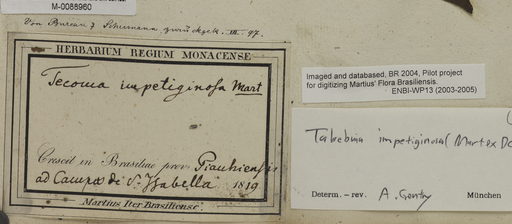 M-0088960
Von Bureau & Schumann zurückgek. III. 97.
HERBARIUM REGIUM MONACENSE
Tecoma impetiginosa Mart
Crescit in Brasiliae prov. Piauhiensis
ad Campos de S. Ysabella 1819
Martius Iter Brasiliense.
Imaged and databased, BR 2004, Pilot project
for digitizing Martius' Flora Brasiliensis.
ENBI-WP13 (2003-2005)
Tabebuia impetiginosa (Mart ex DC
Determ. – rev. A. Gentry München